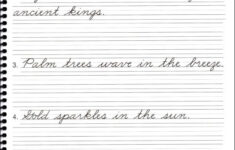 ancient kings.
3. Palm trees wave in the breeze.
4. Gold sparkles in the sun.